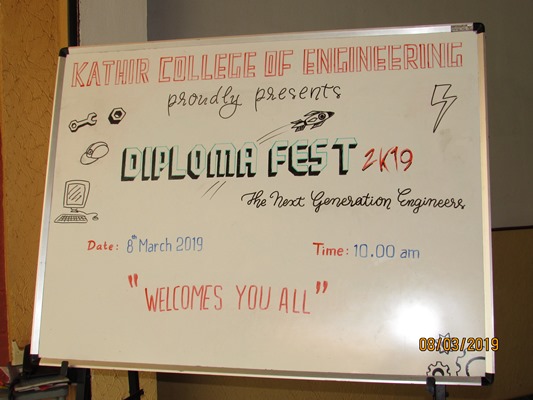 KATHIR COLLEGE OF ENGINEERING
proudly presents
DIPLOMA FEST 2K19
The Next Generation Engineers
Date: 8th March 2019 Time: 10.00 am
"WELCOMES YOU ALL"
08/03/2019